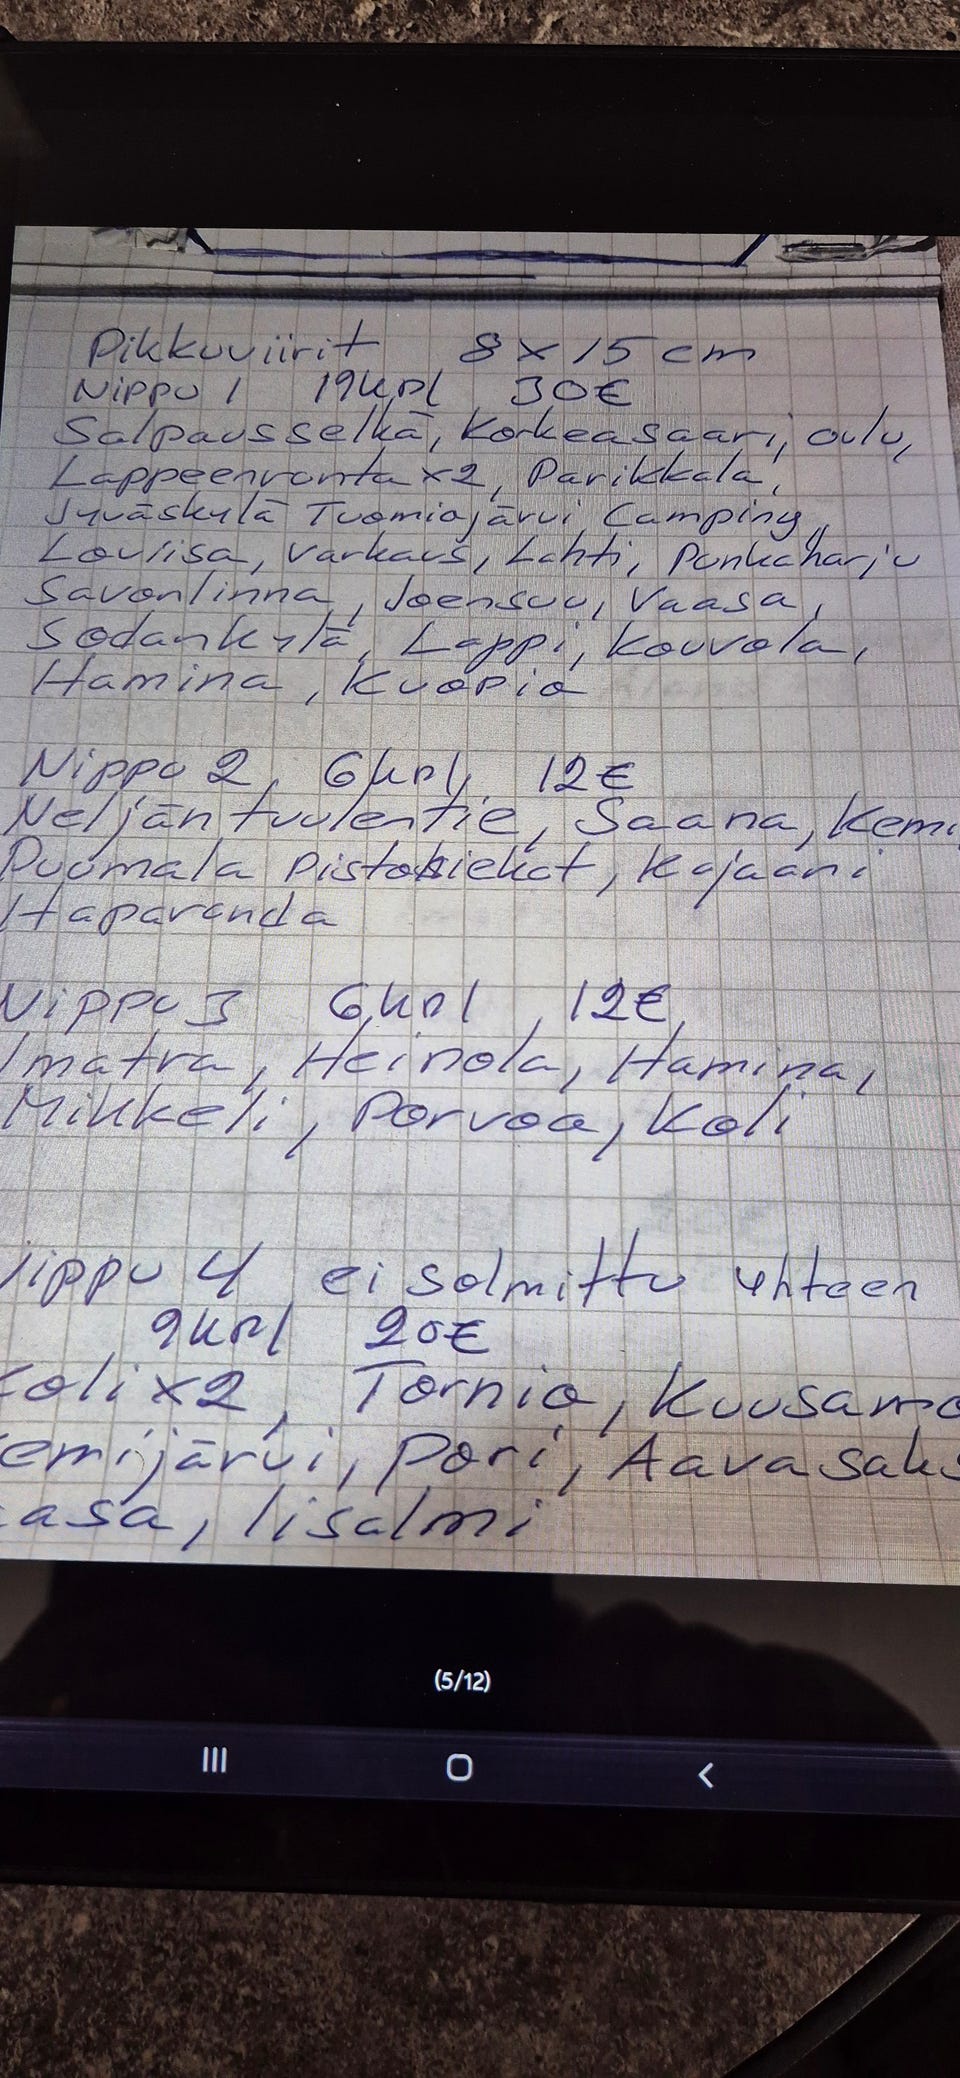 Pikkuviirit 8x15cm
Nippu 1 19kpl 30€
Salpausselkä, Korkeasaari, Oulu,
Lappeenranta x2, Parikkala,
Jyväskylä Tuomiojärvi Camping,
Loviisa, Varkaus, Lahti, Punkaharju
Savonlinna, Joensuu, Vaasa,
Sodankylä, Lappi, Kouvola,
Hamina, Kuopio
Nippu 2, 6kpl, 12€
Neljäntuulentie, Saana, Kemi
Puumala Pistohiekat, Kajaani
Haparanda
Nippu 3 6kpl, 12€
Imatra, Heinola, Hamina,
Mikkeli, Porvoo, Koli
Nippu 4 ei solmittu yhteen
9kpl 20€
Koli x2, Tornio, Kuusamo
emijärvi, Pori, Aavasaks
aasa, Iisalmi
(5/12)